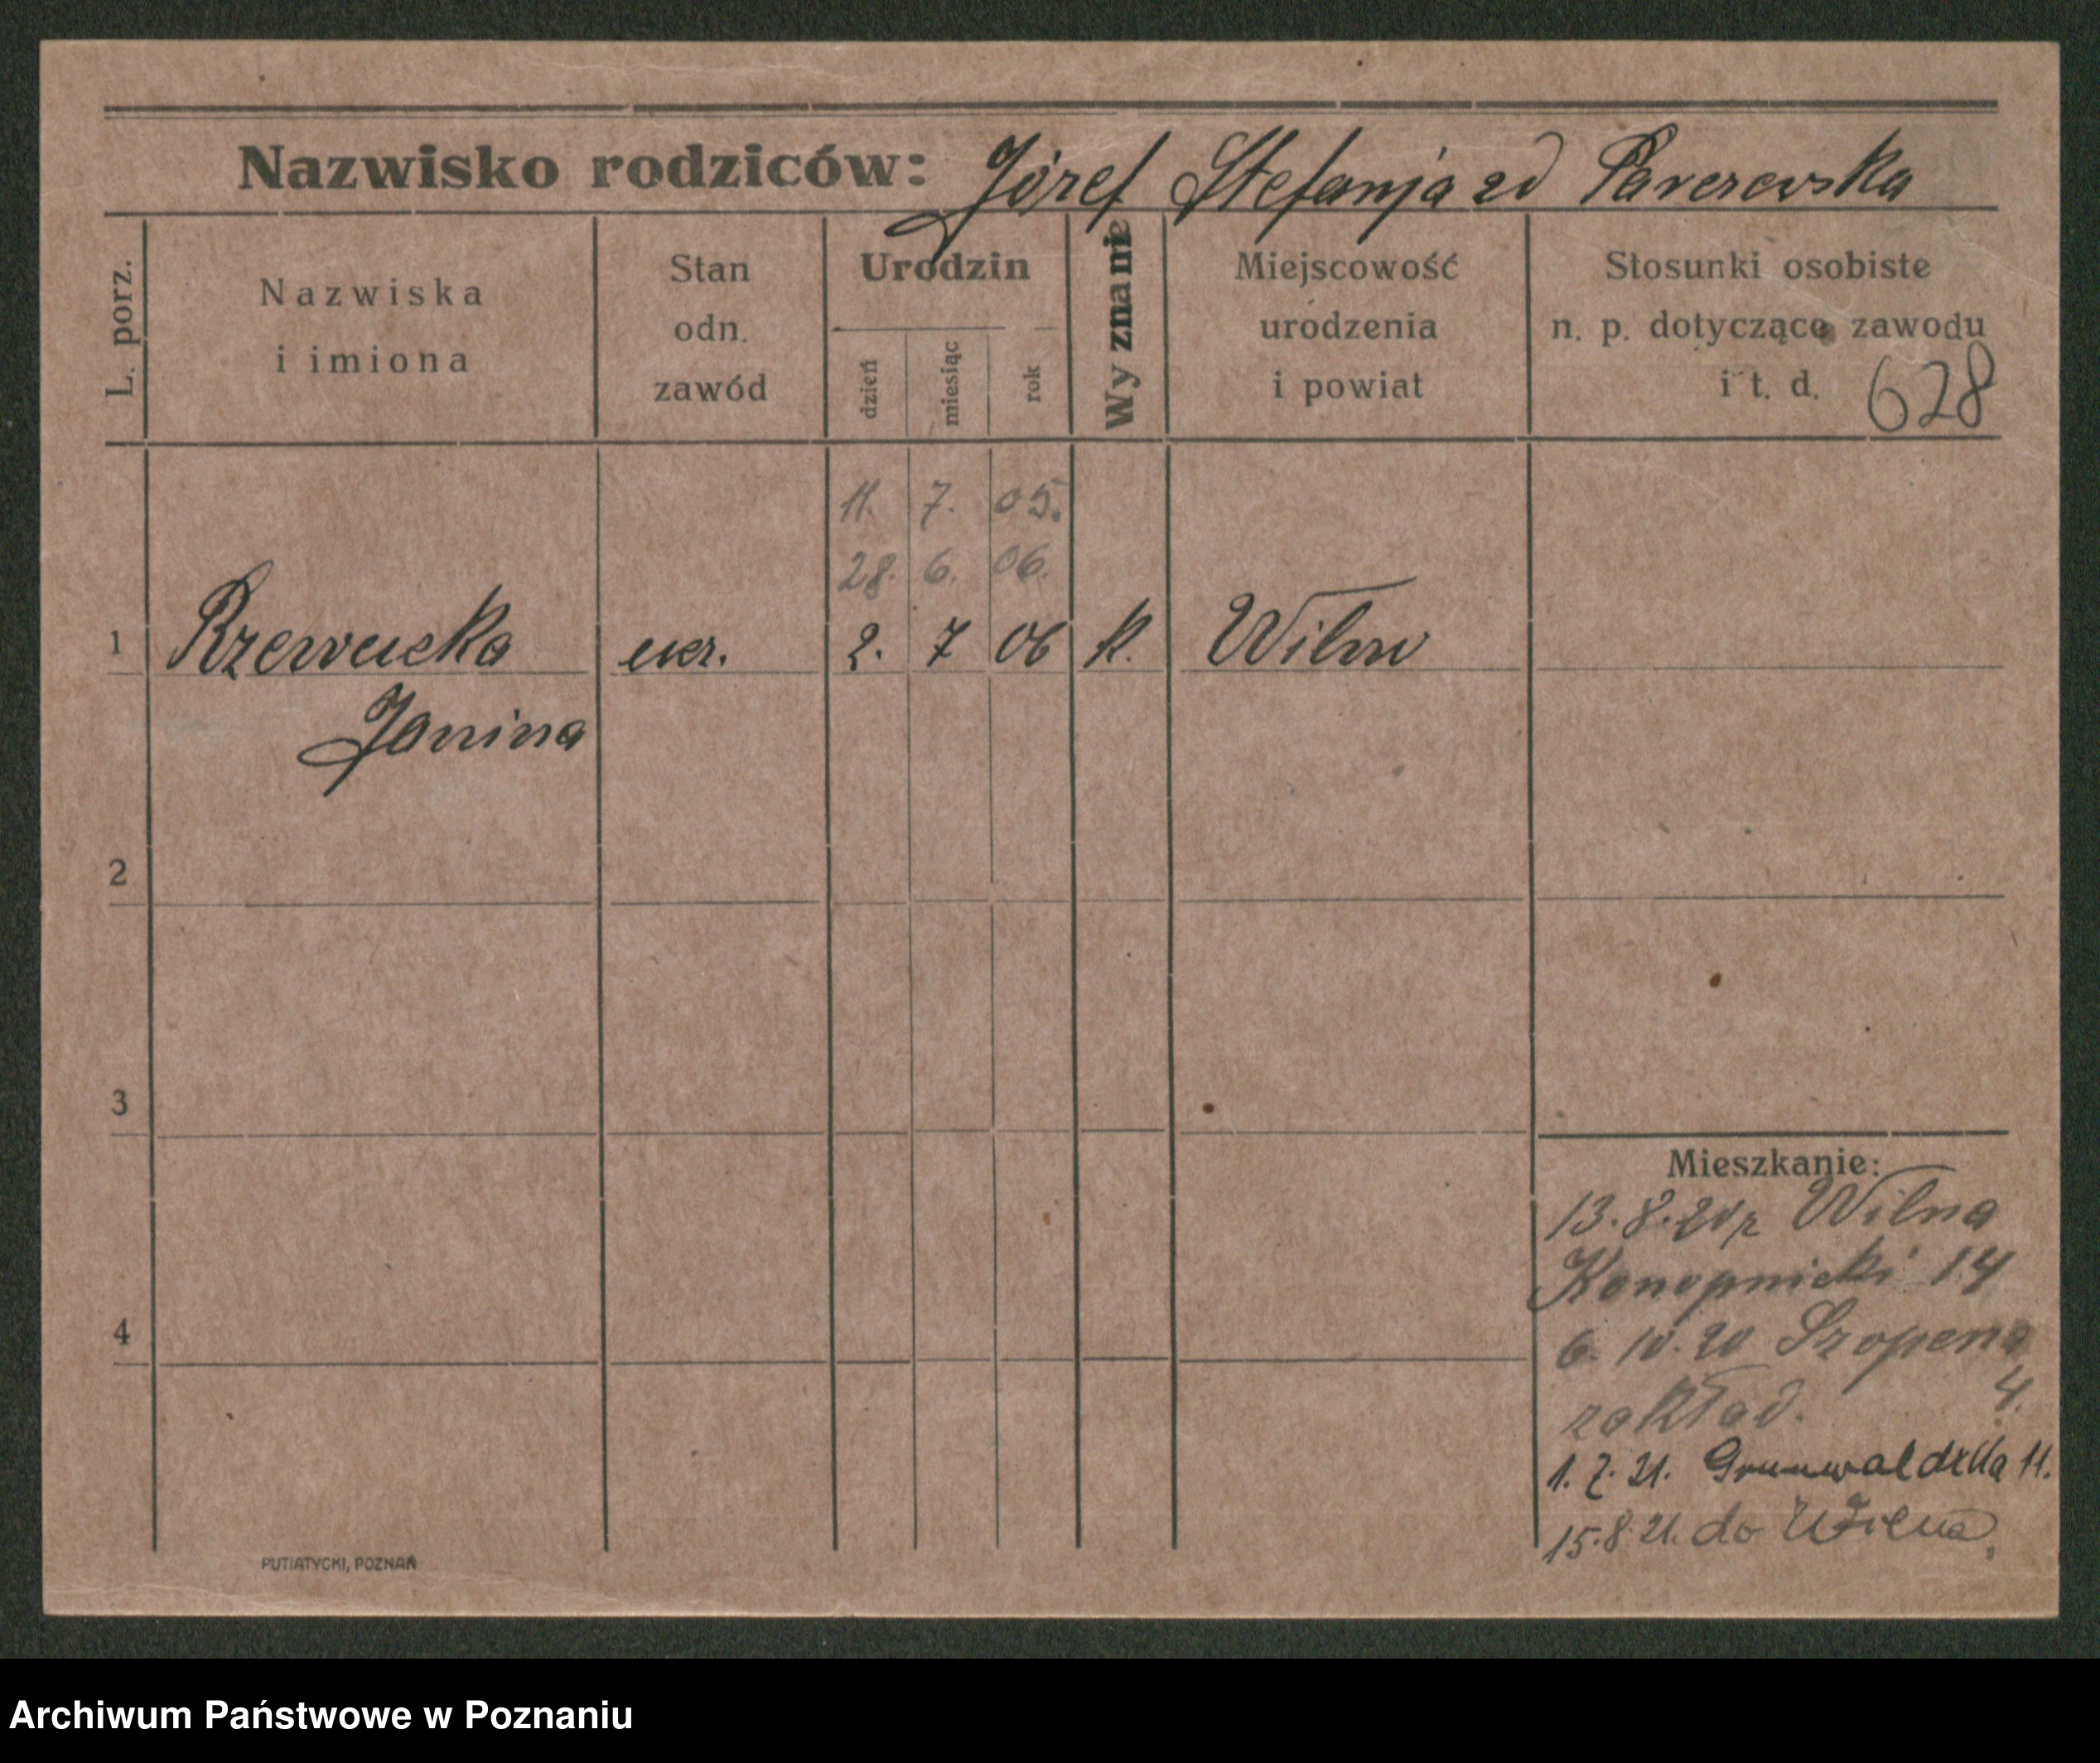 Nazwisko rodziców: Józef Stefanja zd
L. porz.
Nazwiska
i imiona
Stan
odn.
zawód
Urodzin
dzień
miesiąc
rok
Wyznanie
Miejscowość
urodzenia
i powiat
Stosunki osobiste
n. p. dotyczące zawodu
i t. d. 628
11. 7. 05.
28. 6. 06.
1 Rzewucka ucz. 2. 7 06 k. Wilno
Janina
2
3
4
Mieszkanie:
13.8.20 z Wilna
Konopnicki 14
6. 10. 20 Szopena
4.
zakład.
1. 7. 21. Grunwaldzka 11.
15.8.21. do Wilna,
PUTIATYCKI, POZNAŃ
Archiwum Państwowe w Poznaniu